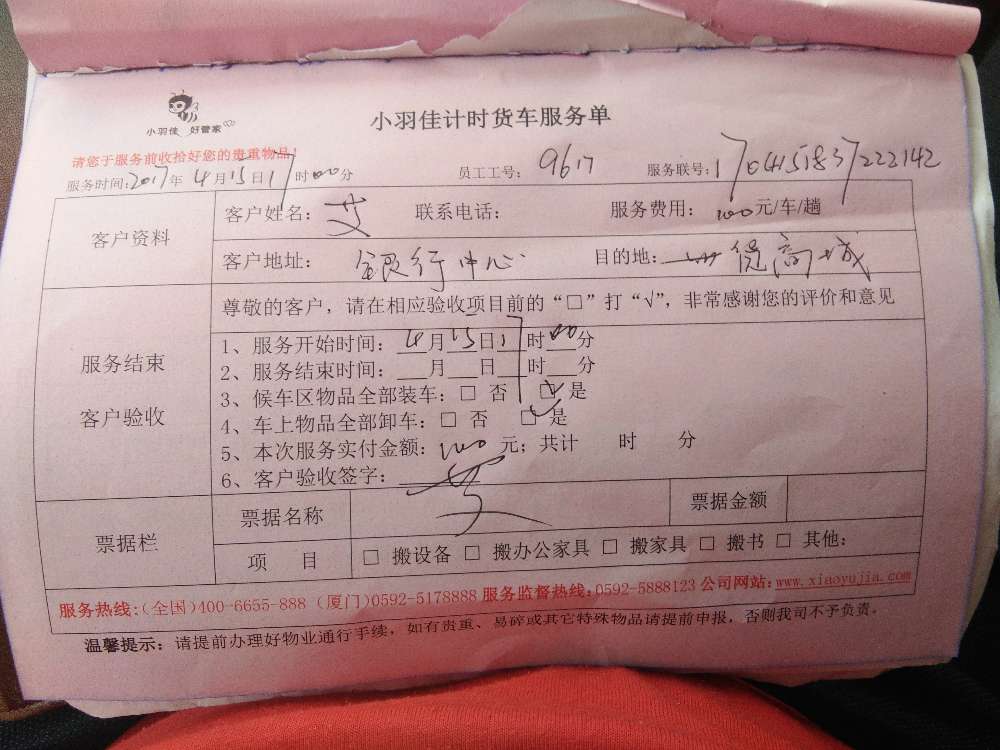 小羽佳 好管家
小羽佳计时货车服务单
请您于服务前收拾好您的贵重物品！
服务时间:2017年4月15日17时00分 员工工号: 9617 服务联号:170415837222142
客户资料
客户姓名: 艾 联系电话: 服务费用: 100元/车/趟
客户地址: 银行中心 目的地: 悦商城
尊敬的客户，请在相应验收项目前的“□”打“√”，非常感谢您的评价和意见
服务结束
客户验收
1、服务开始时间: 4月15日17时00分
2、服务结束时间: 月 日 时 分
3、候车区物品全部装车: □ 否 ☑ 是
4、车上物品全部卸车: □ 否 ☑ 是
5、本次服务实付金额: 100 元; 共计 时 分
6、客户验收签字:
票据栏
票据名称 票据金额
项 目 □ 搬设备 □ 搬办公家具 □ 搬家具 □ 搬书 □ 其他:
服务热线:(全国)400-6655-888 (厦门)0592-5178888 服务监督热线:0592-5888123 公司网站: www.xiaoyujia.com
温馨提示: 请提前办理好物业通行手续，如有贵重、易碎或其它特殊物品请提前申报，否则我司不予负责。